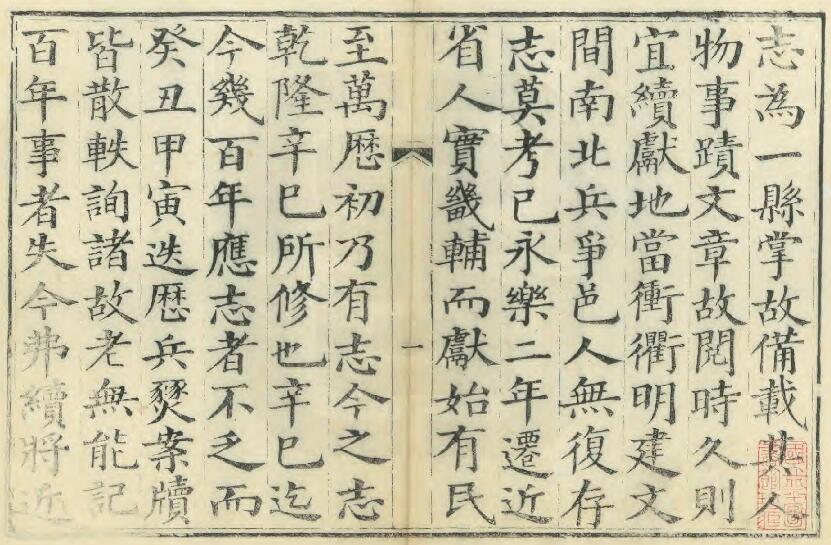 志為一縣掌故備載其人
物事蹟文章故閱時久則
宜續獻地當衝衢明建文
間南北兵爭邑人無復存
志莫考已永樂二年遷近
省人實畿輔而獻始有民
一
至萬曆初乃有志今之志
乾隆辛巳所修也辛巳迄
今幾百年應志者不乏而
癸丑甲寅迭歷兵燹案牘
皆散軼詢諸故老無能記
百年事者失今弗續將近